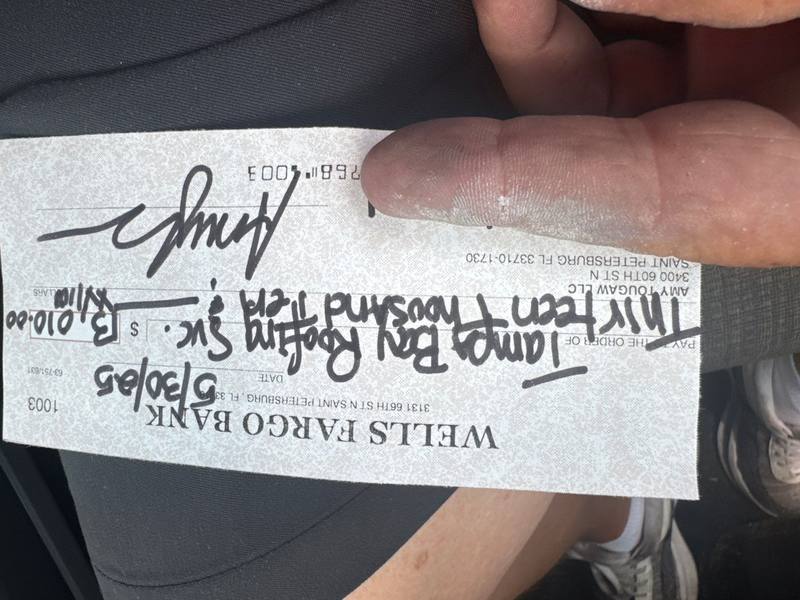 WELLS FARGO BANK
3131 66TH ST N SAINT PETERSBURG, FL 33
1003
5/30/25
DATE
63-751/631
PAY THE ORDER OF
Tampa Bay Roofing Svc.
$ 13,010.00
Thirteen Thousand Ten &
DOLLARS
AMY TOUGAW LLC
3400 60TH ST N
SAINT PETERSBURG FL 33710-1730
768⑈ 1003